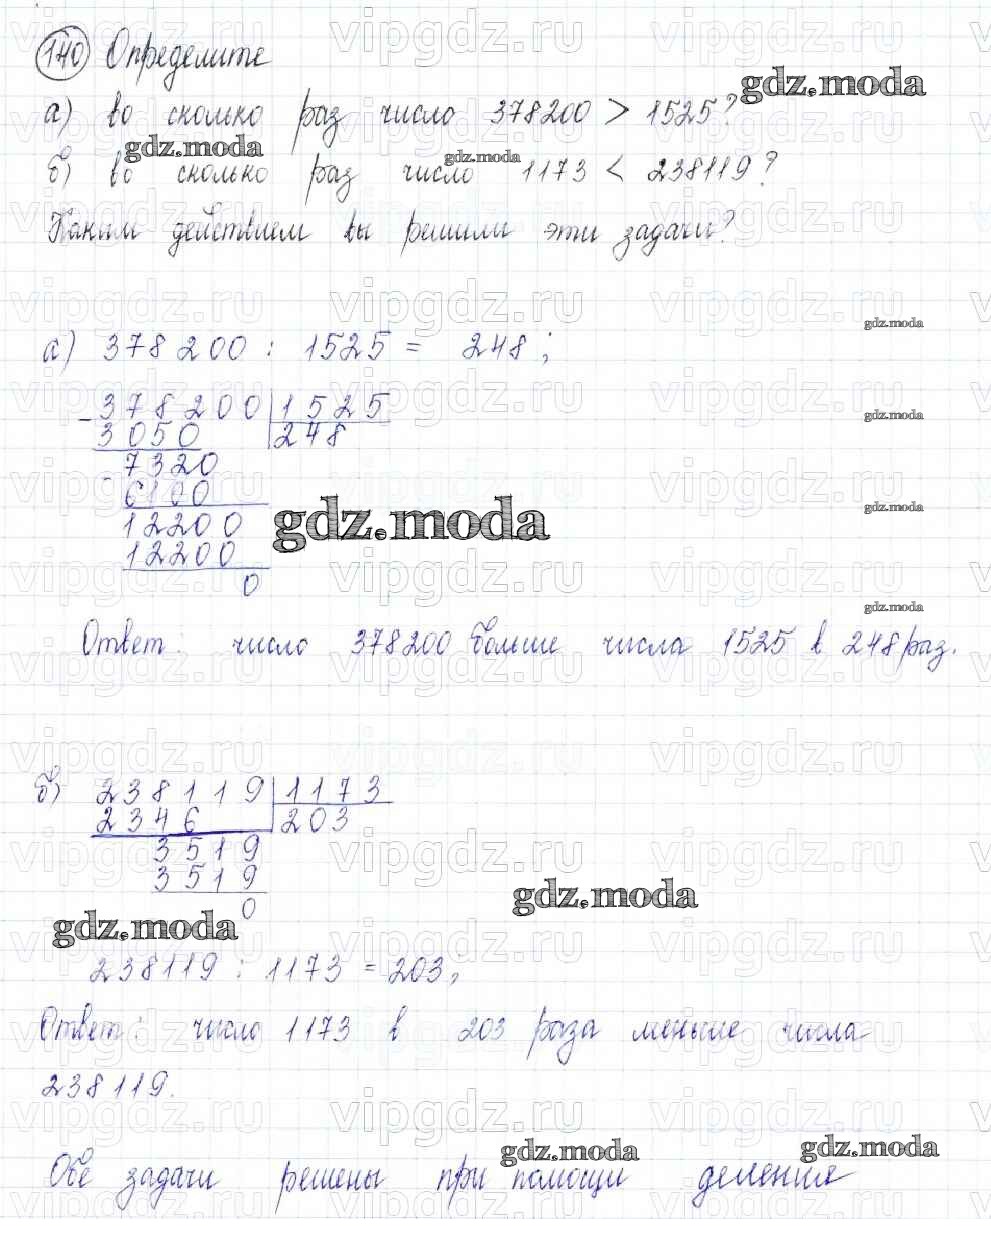 140 Определите
а) во сколько раз число 378200 > 1525?
б) во сколько раз число 1173 < 238119?
Каким действием вы решили эти задачи?
а) 378200 : 1525 = 248;
- 378200 | 1525
3050 | 248
- 7320
6100
12200
12200
0
Ответ: число 378200 больше числа 1525 в 248 раз.
б) 238119 | 1173
2346 | 203
3519
3519
0
238119 : 1173 = 203;
Ответ: число 1173 в 203 раза меньше числа
238119.
Обе задачи решены при помощи деления
gdz.moda
vipgdz.ru